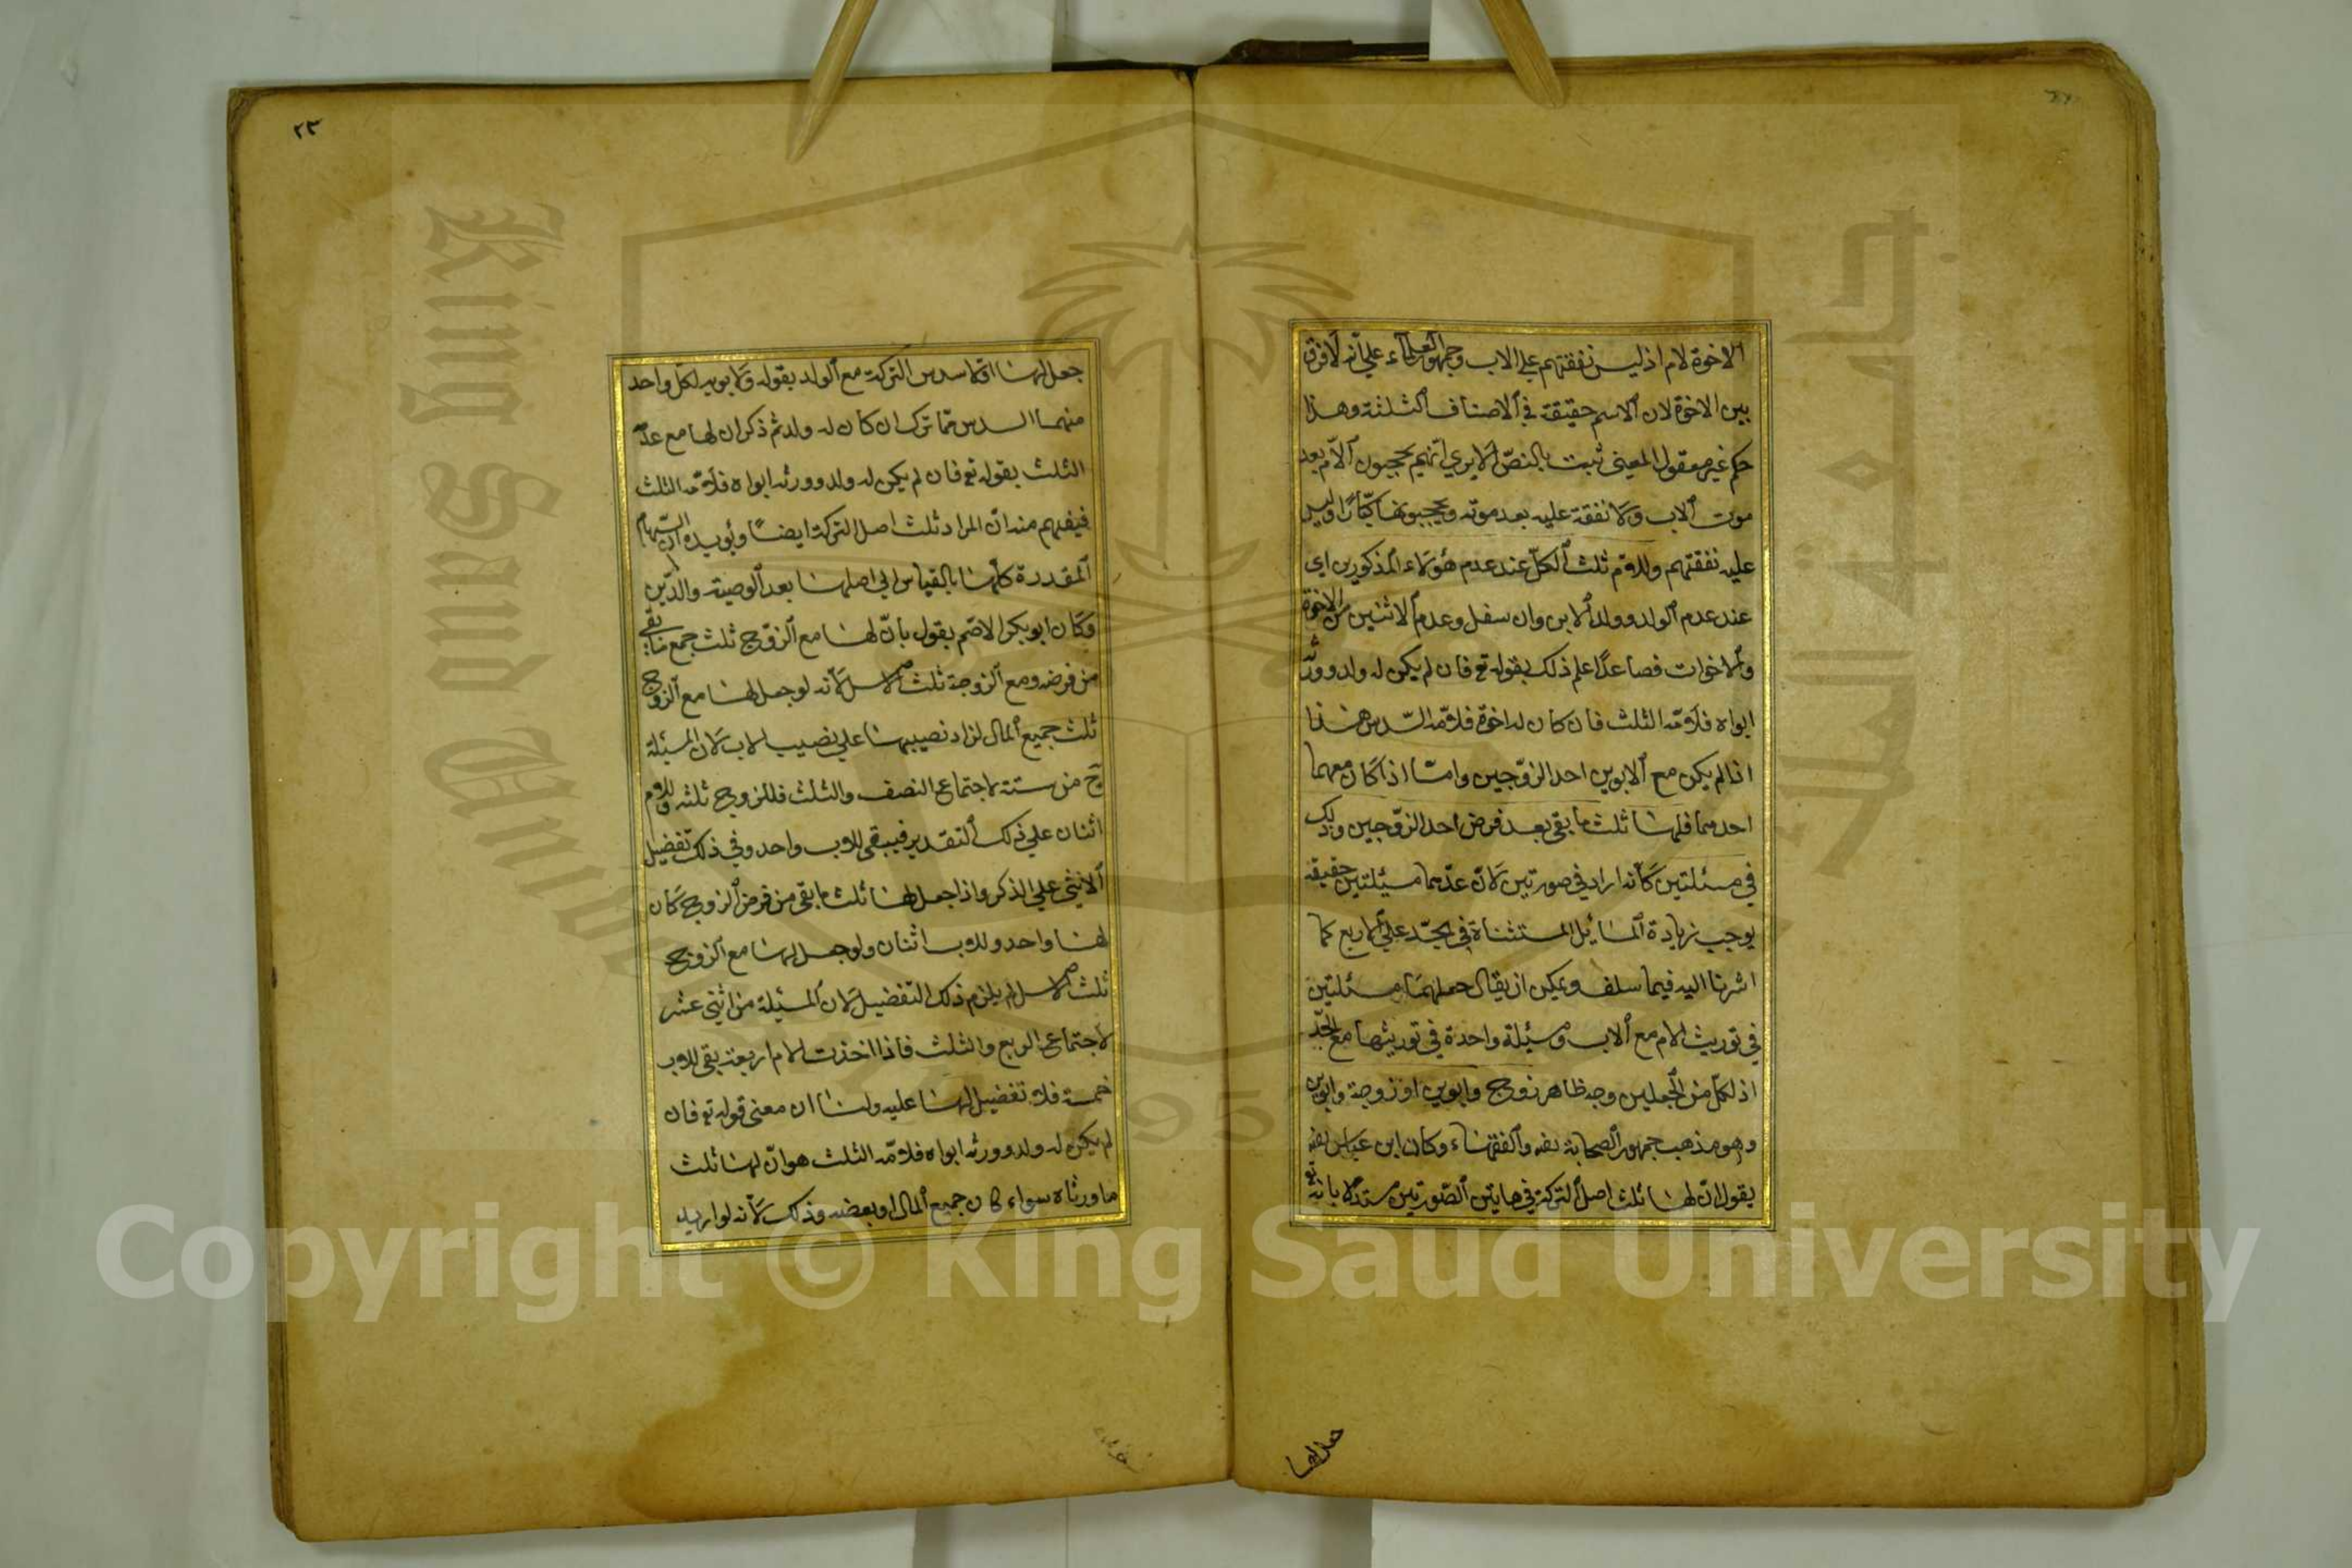 الاخوة لام اذ ليس نفقتهم علي الاب وجمهور العلماء علي انه لا فرق
بين الاخوة لان الاسم حقيقة في الاصناف الثلثة وهذا
حكم غير معقول المعني ثبت بالنصّ الا يري انهم يحجبون الامّ بعد
موت الاب ولا نفقة عليه بعد موته ويحجبونها كبارًا وليس
عليه نفقتهم وللامّ ثلث الكلّ عند عدم هؤلاء المذكورين اي
عند عدم الولد وولد الابن وان سفل وعدم الاثنين من الاخوة
والاخوات فصاعدًا علم ذلك بقوله تع فان لم يكن له ولد وورثه
ابواه فلامّه الثلث فان كان له اخوة فلامّه السّدس هذا
اذا لم يكن مع الابوين احد الزوّجين وامّا اذا كان معهما
احدهما فلها ثلث ما بقي بعد فرض احد الزوّجين وذلك
في مسئلتين كأنه اراد في صورتين لانّ عدّهما مسئلتين حقيقة
يوجب زيادة المسائل المستثناة في الجدّ علي الاربع كما
اشرنا اليه فيما سلف ويمكن ان يقال جعلهما مسئلتين
في توريث الام مع الاب ومسئلة واحدة في توريثها مع الجدّ
اذ لكلّ من الجعلين وجه ظاهر زوج وابوين او زوجة وابوين
وهو مذهب جمهور الصحابة رضه والفقهاء وكان ابن عباس رضه
يقول انّ لها ثلث اصل التركة في هاتين الصّورتين مستدلا بانه تع
جعل لها
٢٣
جعل لها اوّلا سدس التركة مع الولد بقوله ولابويه لكلّ واحد
منهما السدس ممّا ترك ان كان له ولد ثم ذكر ان لها مع عدمه
الثلث بقوله تع فان لم يكن له ولد وورثه ابواه فلامّه الثلث
فيفهم منه انّ المراد ثلث اصل التركة ايضًا ويؤيده ان السّهام
المقدرة كلّها بالقياس الي اصلها بعد الوصية والدّين
وكان ابو بكر الاصّم يقول بانّ لها مع الزوّج ثلث جميع ما بقي
من فرضه ومع الزوجة ثلث الاصل لانه لو جعل لها مع الزوج
ثلث جميع المال لزاد نصيبها علي نصيب الاب لان المسئلة
ح من ستة لاجتماع النصف والثلث فللزوج ثلثة وللام
اثنان علي ذلك التقدير فيبقي للاب واحد وفي ذلك تفضيل
الانثي علي الذكر واذا جعل لها ثلث ما بقي من فرض الزوج كان
لها واحد وللاب اثنان ولو جعل لها مع الزوج
ثلث الاصل لم يلزم ذلك التفضيل لان المسئلة من اثني عشر
لاجتماع الربع والثلث فاذا اخذت الام اربعة بقي للاب
خمسة فلا تفضيل لها عليه ولنا ان معني قوله تع فان
لم يكن له ولد وورثه ابواه فلامّه الثلث هو انّ لها ثلث
ما ورثاه سواء كان جميع المال او بعضه وذلك لانه لو اريد
Copyright © King Saud University